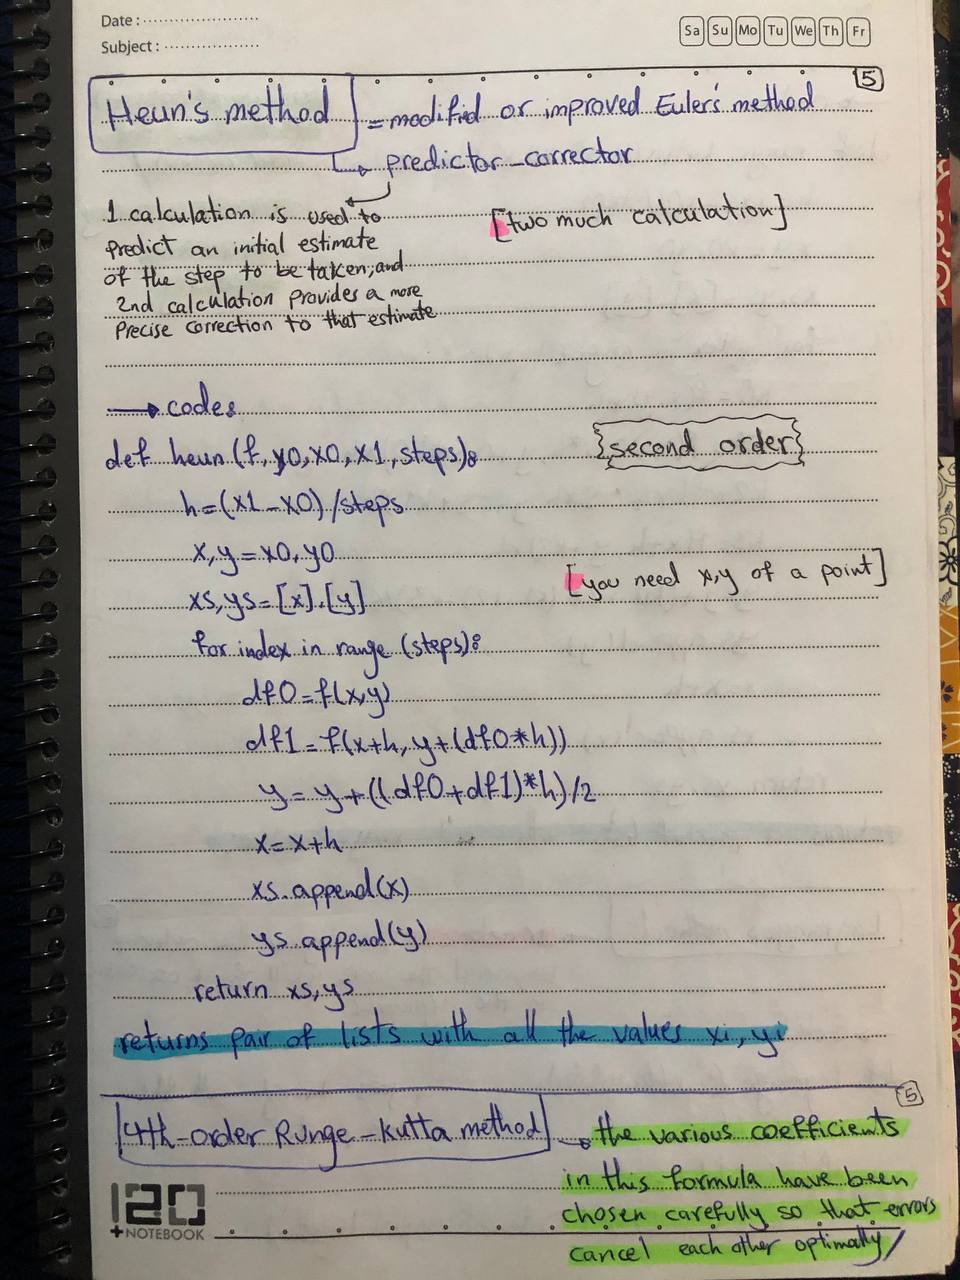 Date :
Subject :
Sa Su Mo Tu We Th Fr
5
Heun's method = modified or improved Euler's method
predictor-corrector
1 calculation is used to
predict an initial estimate
of the step to be taken, and
2nd calculation provides a more
Precise correction to that estimate
[two much calculation]
codes
def heun(f, y0, x0, x1, steps):
second order
h = (x1 - x0) / steps
x, y = x0, y0
[you need x, y of a point]
xs, ys = [x], [y]
for index in range (steps):
df0 = f(x,y)
df1 = f(x+h, y+(df0*h))
y = y + ((df0+df1)*h)/2
x = x+h
xs.append(x)
ys.append(y)
return xs, ys
returns pair of lists with all the values xi, yi
5
4th-order Runge-Kutta method
the various coefficients
in this formula have been
chosen carefully so that errors
cancel each other optimally
120
+NOTEBOOK